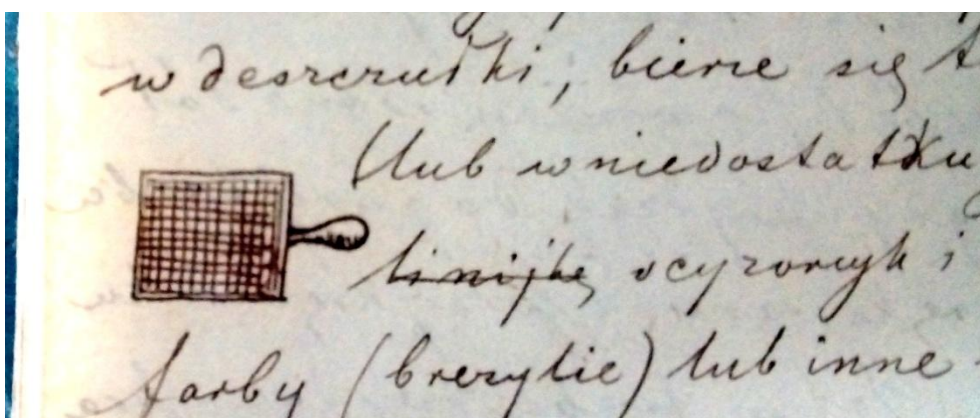 w deszczułki, bierze się
(lub w niedostatku
linijkę ocyzoryk i
farby (brezylie) lub inne